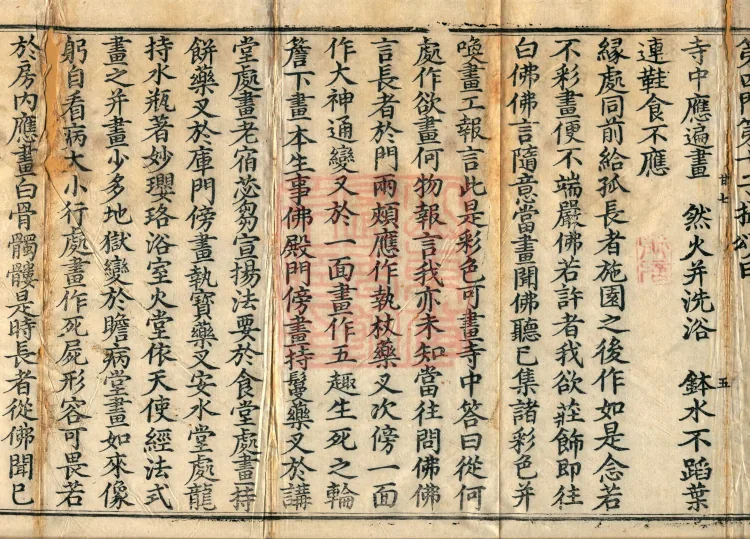 寺中應遍畫　然火并洗浴　鉢水不蹈葉
連鞋食不應
緣處同前給孤長者施園之後作如是念若
不彩畫便不端嚴佛若許者我欲莊飾即往
白佛佛言隨意當畫聞佛聽已集諸彩色并
喚畫工報言此是彩色可畫寺中答曰從何
處作欲畫何物報言我亦未知當往問佛佛
言長者於門兩頰應作執杖藥叉次傍一面
作大神通變又於一面畫作五趣生死之輪
簷下畫本生事佛殿門傍畫持鬘藥叉於講
堂處畫老宿苾芻宣揚法要於食堂處畫持
餅藥叉於庫門傍畫執寶藥叉安水堂處龍
持水瓶著妙瓔珞浴室火堂依天使經法式
畫之并畫少多地獄變於贍病堂畫如來像
躬自看病大小行處畫作死屍形容可畏若
於房內應畫白骨髑髏是時長者從佛聞已
廿七
五